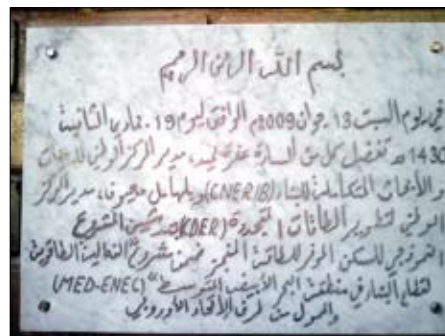 بسم الله الرحمن الرحيم
في يوم السبت 13 جوان 2009م الموافق ليوم 19 جمادى الثانية
1430هـ تفضل كل من السادة مدير المركز الوطني للدراسات
والأبحاث المتكاملة للبناء (CNERIB) مدير المركز
الوطني لتطوير الطاقات المتجددة (CDER) المشروع
النموذجي للسكن الموفر للطاقة ضمن مشروع الفعالية الطاقوية
لقطاع البناء في منطقة البحر الأبيض المتوسط (MED-ENEC)
والممول من طرف الاتحاد الأوروبي